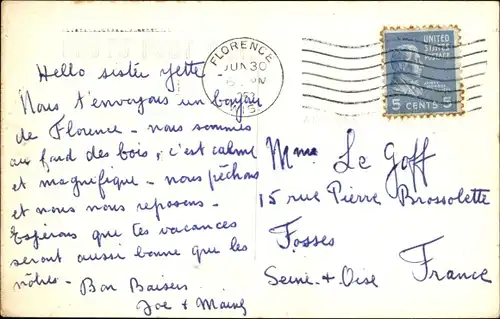 Hello sister yette
Nous t'envoyons un
de Florence - nous sommes
au fond des bois, c'est calme
et magnifique - nous pêchons
et nous nous reposons -
Espérons que tes vacances
seront aussi bonne que les
nôtres - Bon Baisers
Joe +
FLORENCE
JUN 30
WIS
UNITED
STATES
POSTAGE
5 CENTS 5
Mme Le Goff
15 rue Pierre Brossolette
Fosses
Seine & Oise France